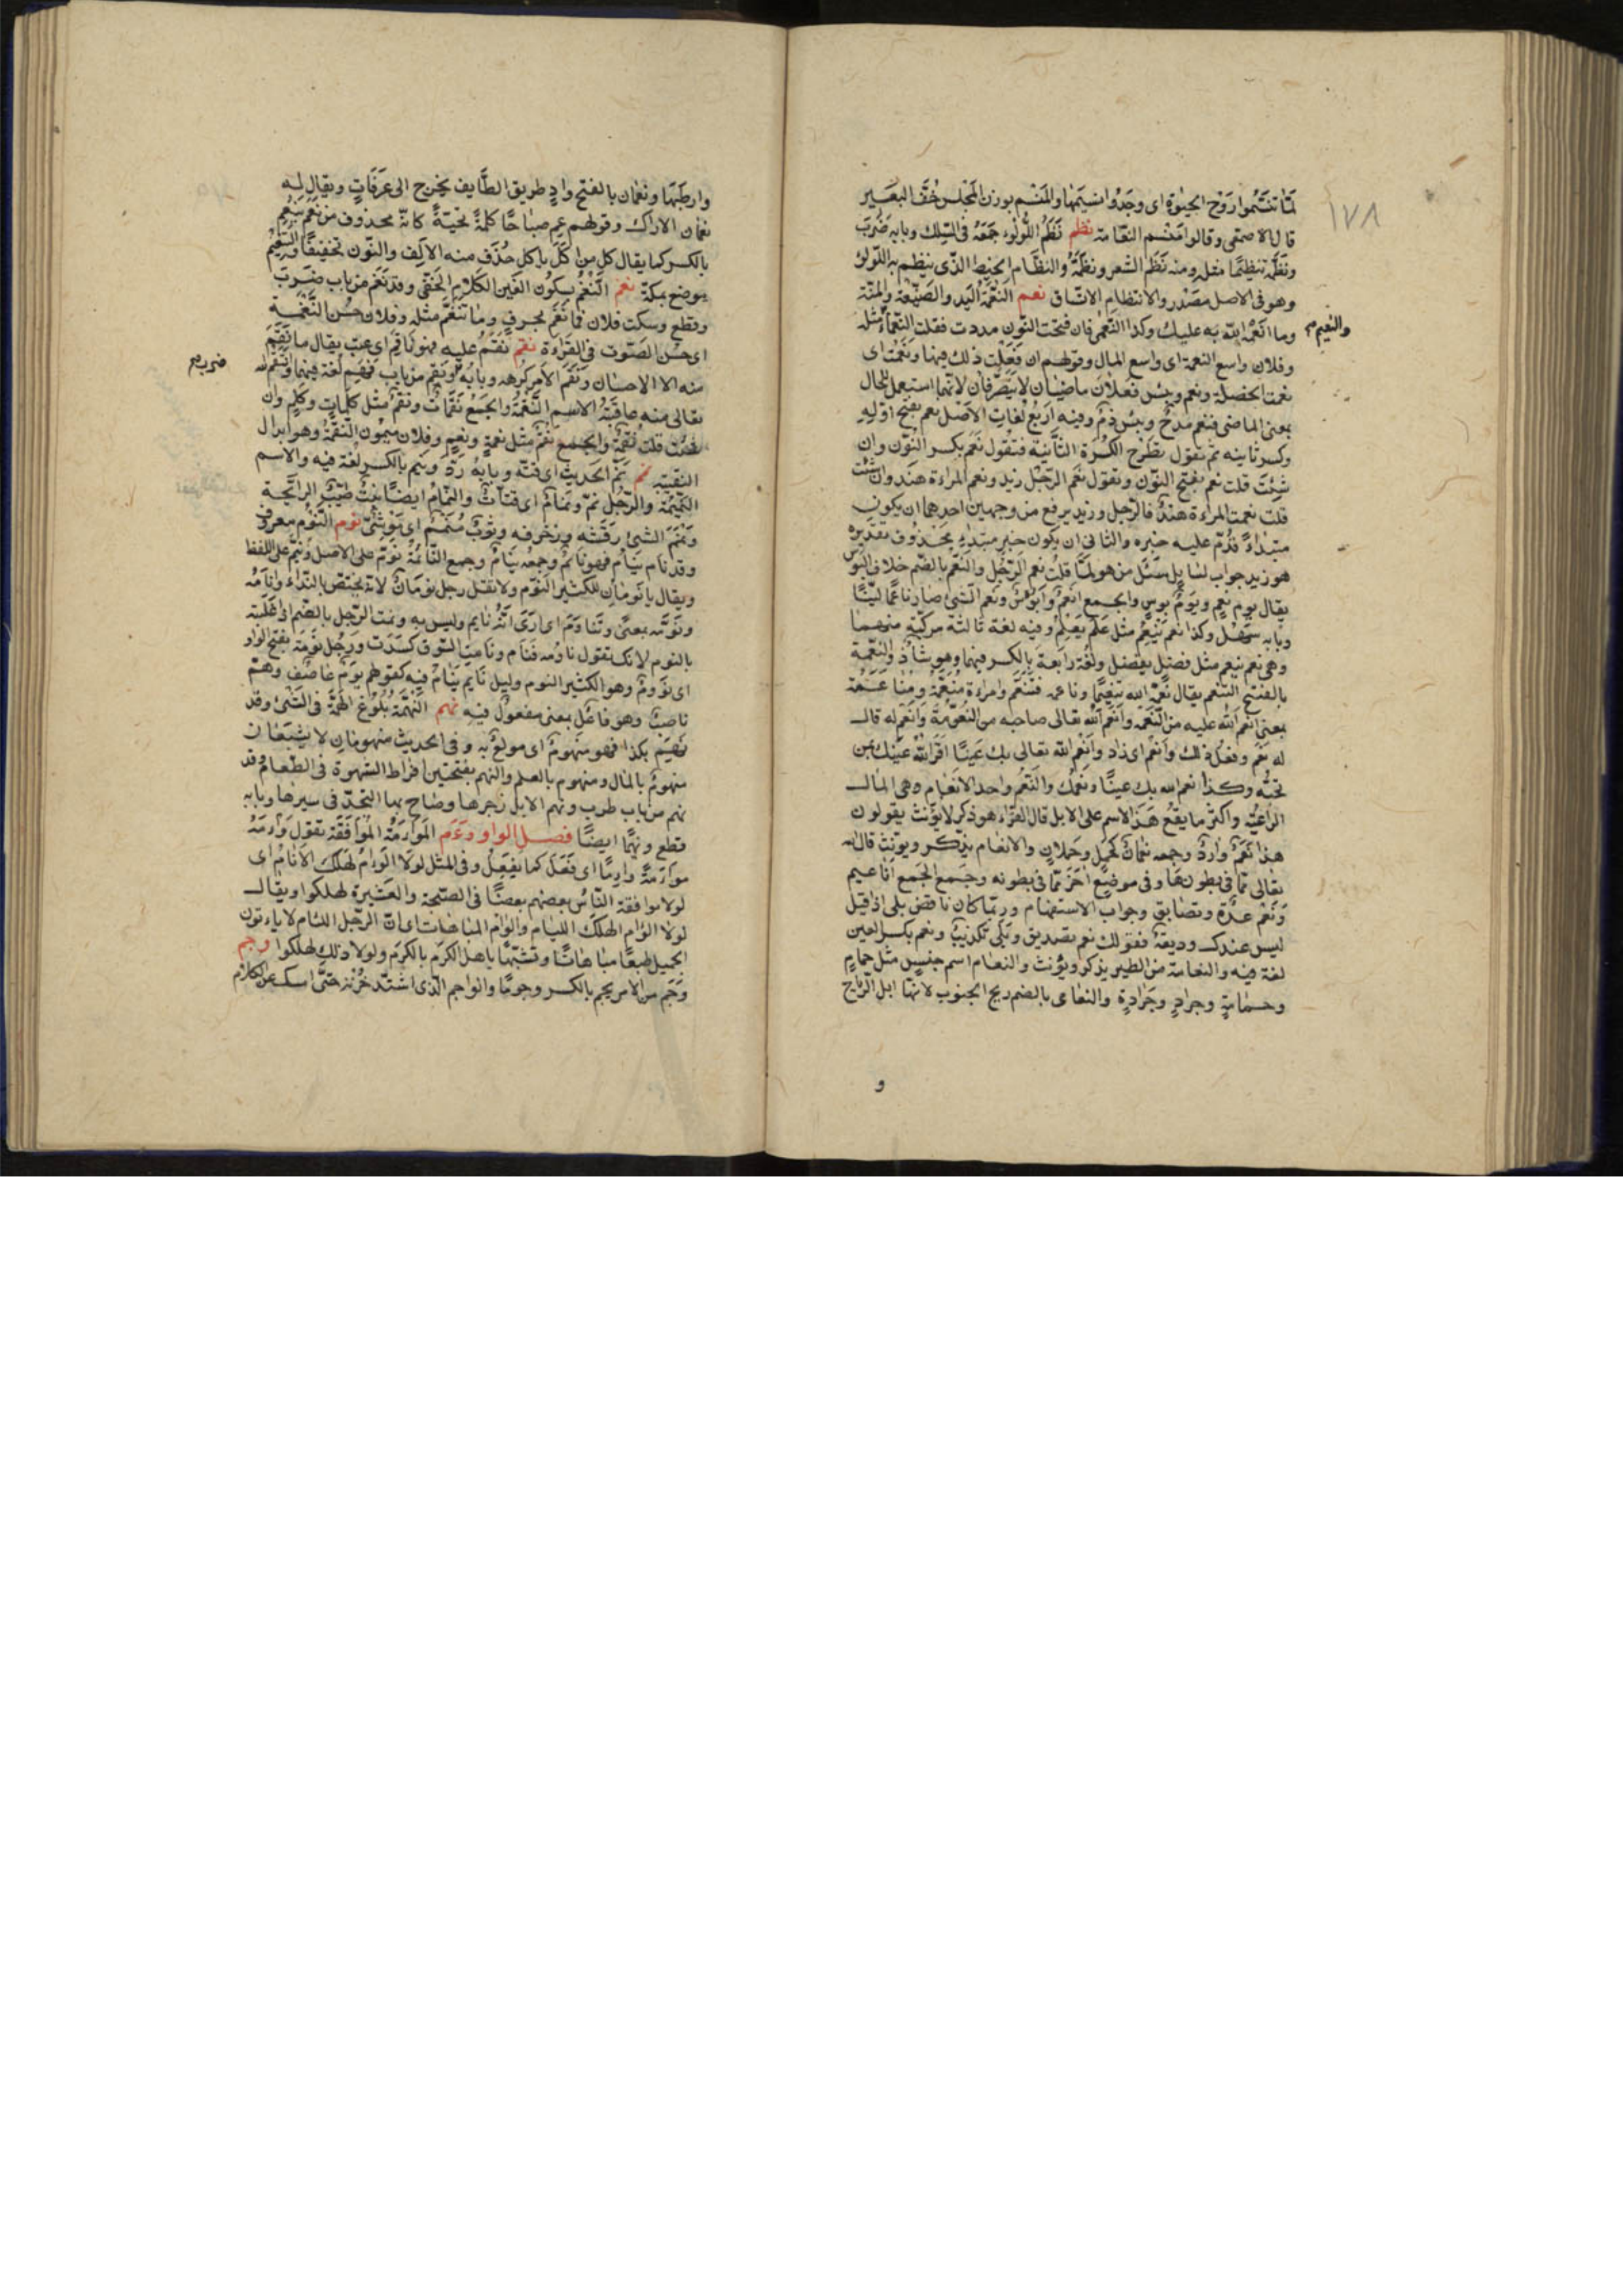 ١٧٨
لما تنسّموا رَوْح الحيٰوة اى وجَدُوا نسيَمها والمَنْسم بوزن المَجْلس خُفّ البعَير
قال الاصمعى وقالوا مَنْسم النعّامة نظم نَظَمَ اللُّؤلؤء جَمَعَهُ فى السِّلك وبابه ضَرَبَ
ونَظَّمَه تنظيمًا مثله ومنه نَظَمَ الشعر ونظَّمَهُ والنظَام الخيط الذّى ينظم به اللّولؤ
وهو فى الاصل مصْدَر والانتظام الاتّساق نعم النعْمَةُ اليَد والصَنيْعة والمنّة
والنعيم
وما انْعَمَ اللّه به عليك وكذا النّعْمٰى فان فتحت النّون مددت فقلت النّعمَاءُ مثله
وفلان واسع النعمة اى واسع المال وقولهم ان فَعَلْتَ ذلك فبها ونعْمَتْ اى
نعمت الخصلة ونعم وبئس فعلان ماضيان لا يتصرّفان لانّهما استعمل للحال
بمعنى الماضى فنعم مدحٌ وبئس ذمٌ وفيه اَرْبَعُ لُغاتٍ الاصْل نَعِم بفتح اوّله
وكسر ثانيه ثم تقول تطْرح الكسْرَة الثّانية فتقول نعْم بكسر النُّون وان
شِئتَ قلت نعم بفتح النّون وتقول نعْم الرّجُل زيد ونعم المراءة هند وان شئت
قلت نعمت المراءة هندٌ فالرّجل وزيد يرفع من وجهين احدهما ان يكون
مبتداءً قُدّم عليه خبره والثانى ان يكون خبر مبتداءٍ محْذُوفٍ تقديره
هو زيد جواب لسايل سَئل من هو لمّا قلتُ نعم الرّجُل والنّعْم بالضّم خلاف البُوس
يقال يوم نعم ويَوْمٌ بوس والجمع انعُمٌ وابْؤسٌ ونعُم الشئ صار ناعمًا ليّنًا
وبابه سَهُل وكذا نعم يَنْعَم مثل عَلِم يَعْلم وفيه لغة ثالثة مركّبة منهما
وهى نعم ينعم مثل فضل يفضل ولُغة رابعَةٌ بالكسر فيهما وهو شاذّ والنّعْمة
بالفتح التنعّم يقال نعّمه اللّه تنعيمًا وناعمه فتنعّم وامراءة مُنعّمةٌ ومُناعَمَة
بمعنى انعم اللّه عليه من النّعمه وانْعَمَ اللّه تعالى صاحبه من النّعومةُ وانْعَم له قال
له نعَم وفعل ذلك وانعم اى زاد وانْعم اللّه تعالى بك عَينًا اى اقَرّ اللّه عَيْنك بمن
تحبُّه وكذا نعم اللّه بك عينًا ونعمك والنّعَم واحد الانعام وهى المال
الرّاعيّه واكثر ما يقَعُ هَذَا الاسم على الابل قال الفرّاء هو ذكر لا يُؤنّث يقولون
هذا نَعَمٌ واردٌ وجمعه نعمانٌ كحَمَل وحملان والانعام يذكّر ويونّث قال اللّه
تعالى ممّا فى بطونها وفى موضع آخر ممّا فى بطونه وجمع الجَمع اَناعيم
ونعم عدَةٌ وتصديق وجواب الاستفهام وربّما كان ناقض بلى اذا قيل
ليس عندك وديعةٌ فقولك نعم تصديق وبَلى تكذيبٌ ونعم بكسر العين
لغة فيه والنعامة من الطير يذكر ويُؤنث والنعام اسم جنسٍ مثل حمامٍ
وحمامةٍ وجرادٍ وجَرادةٍ والنعامى بالضم ريح الجنوب لانّها ابلّ الرّياح
و
وارطبَهَا ونَعمَان بالفتح وادٍ طريق الطّايف يخرج الى عَرَفَاتٍ ويقال له
نعمان الاراك وقولهم عِم صباحًا كلمةُ تحيّةٌ كانّه محذوف من نَعِم ينعم
بالكسر كما يقال كل من اكل ياكل حُذف منه الالف والنّون تخفيفًا والتنعيم
موضع بمكة نغم النَّغْمُ بسكون الغَين الكلام الخفىّ وقد نَغَم من باب ضَرَبَ
وقطع وسكت فلان فما نَغَم بحرف وما تنَغّم مثله وفلان حسُن النّغْمة
اى حَسَن الصّوت فى القراءة نقم نَقَم عليه فهو ناقِم اى عتب يقال ما نَقم
ضرب
منه الا الاحسان ونَقمَ الامر كرهه وبابُه ونَقِم من باب فَهِم لُغة فيهما وانتقم اللّه
تعالى منه عاقبَهُ الاسم النّقْمَةُ والجَمع نَقمَاتٌ ونَقمٌ مثل كلماتٍ وكلمٍ وان
شئت قلت نقْمَةٌ والجمع نِقَمٌ مثل نعمةٍ ونعمٍ وفلان ميمُون النّقمَة وهو ابدال
النقيبه نمم نَمّ الحديث اى قتّه وبابه رَدّ وينم بالكسر لغة فيه والاسم
النّميْمَة والرّجُل نمّ ونمّامٌ اى قتّاتٌ والنمّام ايضًا نبْتٌ طيّبُ الرايحة
ونَمْنَم الشئ رقَشه وزخرفه وثوبٌ مُنَمْنَمٌ اى مَوْشِىٌّ نوم النَّوْم معروف
وقد نام ينَام فهو نائمٌ وجمعه نيَامٌ وجمع النّائمَة نُوّمٌ على الاصل ونُيّم على اللفظ
ويقال يا نَومَان للكثير النّوم ولا تقل رجل نومَان لانّه يختصّ بالنّداء وانامَهُ
ونَوّمَه بمعنىً وتَنَاوَمَ اى اَرَى انّه نايم وليس به ونمت الرّجل بالضّم اى غَلَبته
بالنوم لانّك تقول ناومه فنام ونامت السّوق كسَدَت ورجُل نوَمَة بفتح الواو
اى نَوُومٌ وهو الكثير النوم وليل نايم يَنَام فيه كقولهم يَوْمٌ عاصِف وهمّ
ناصبٌ وهو فاعل بمعنى مفعول فيه نهم النّهْمَة بلُوْغ الهمَّة فى الشّئ وقد
نهم بكذا فهو منهومٌ اى مولع به وفى الحديث منهومانِ لا يشبَعَان
منهومٌ بالمال ومنهوم بالعلم والنهم بفتحتين افراط الشهوة فى الطعام وقد
نهم من باب طرب ونهم الابل زجرها وصاح بها لتجدّ فى سيرها وبابه
قطع ونهيمًا ايضًا فصل الواو وءم المواءَمَةُ المُوَافَقَة تقول وَاءَمَهُ
مواءَمَةً وواِمًا اى فَعَلَ كما يَفعَلُ وفى المثل لولا الوِئام لهَلكَ الانام اى
لولا موافقة النّاس بعضهم بعضًا فى الصّحبَة والعشيرة لهلكوا ويقال
لولا الوئام لهلك اللّيام والوئام المباهات اى انّ الرّجل اللئام لا ياءتون
الجميل طبعًا مباهاتًا وتشبّهًا باهل الكرم بالكرم ولولا ذلك لهلكوا وجم
وَجَم من الامر يجم بالكسر وجومًا والواجم الذى اشتدّ حُزْنه حتّى امسك عن الكلام